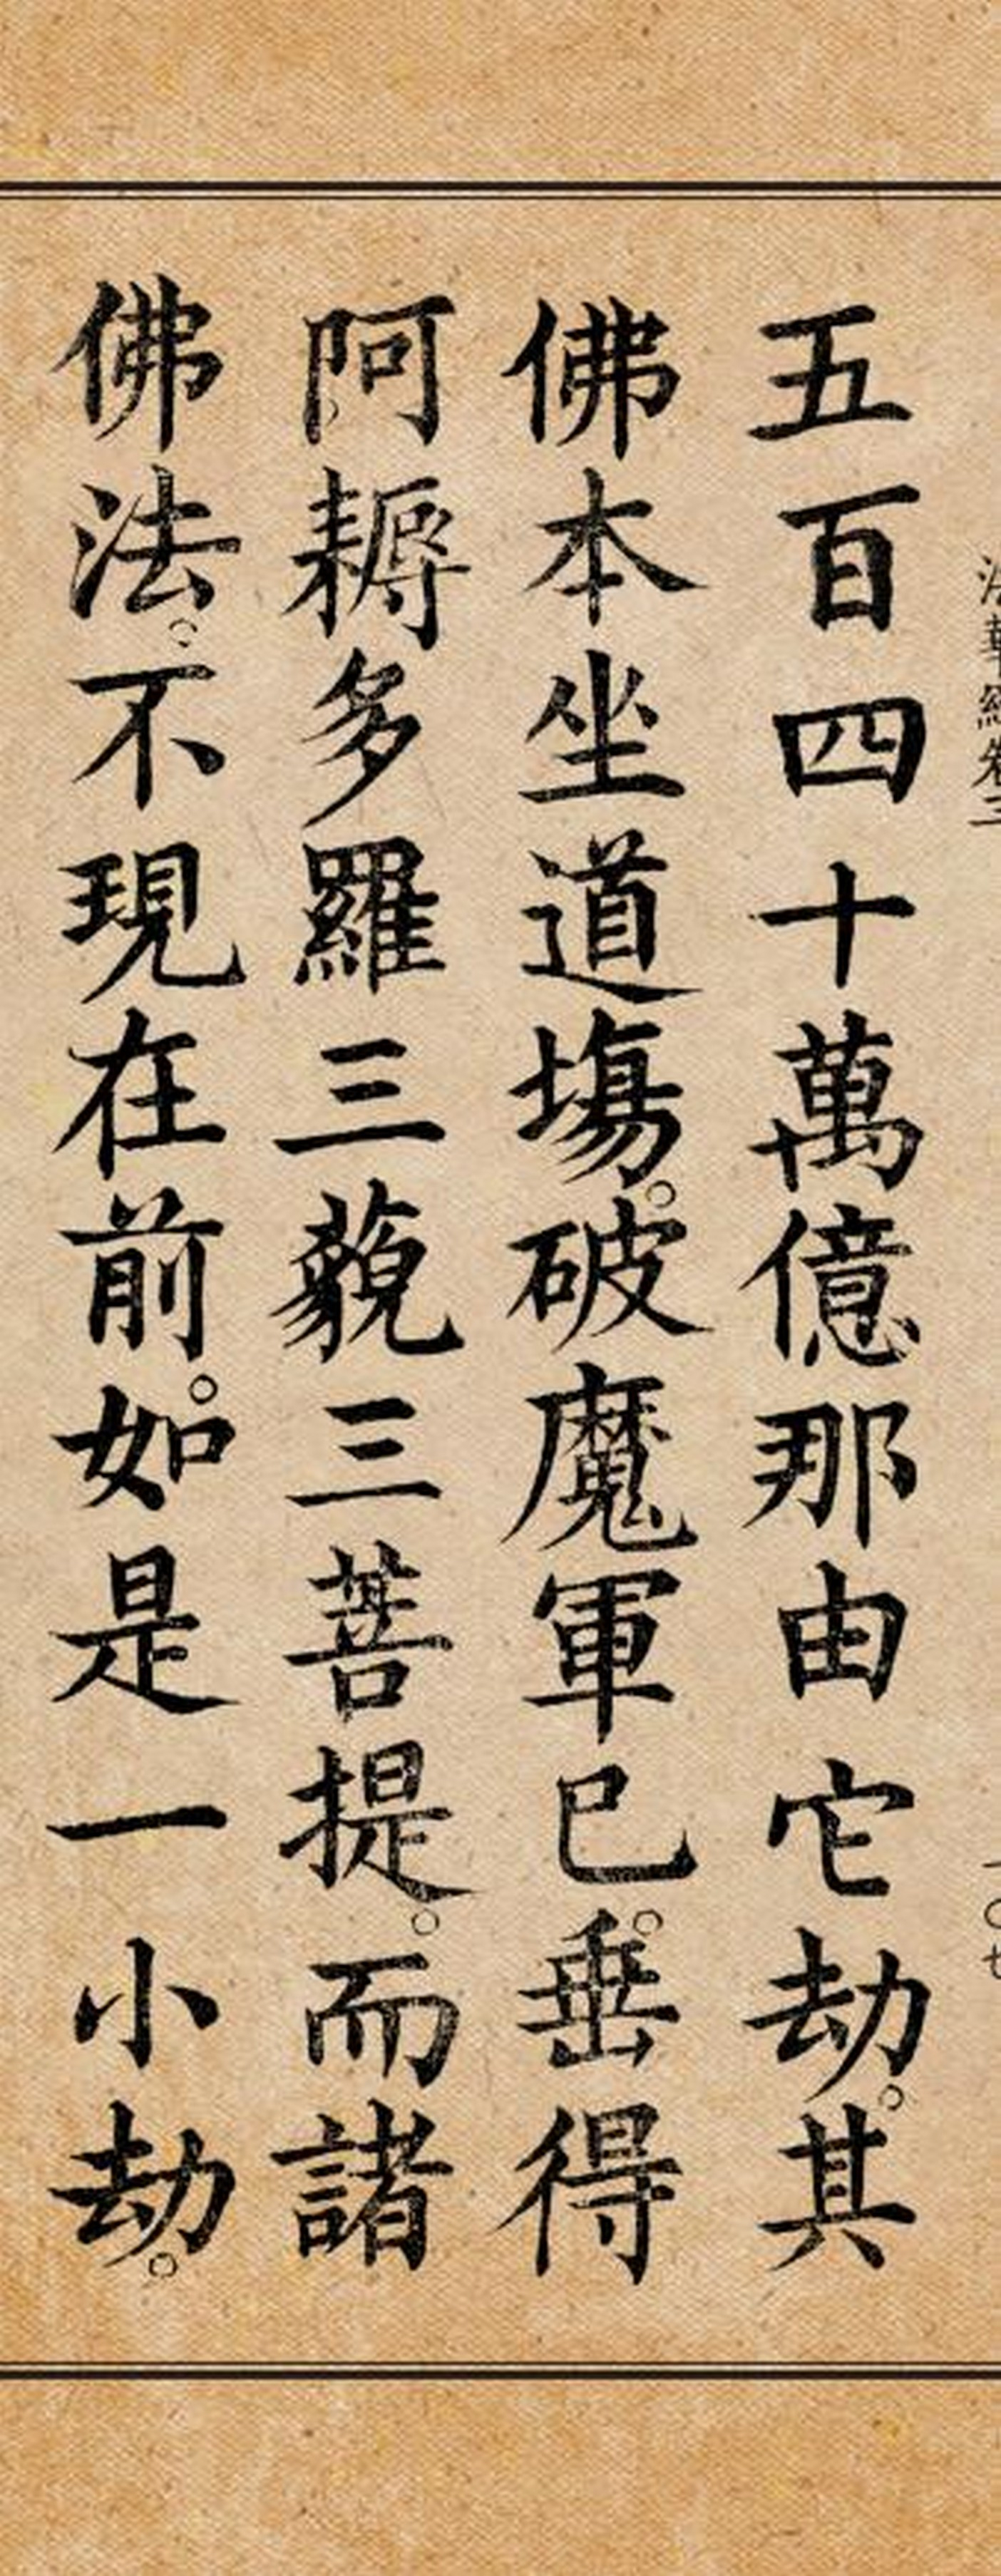 法華經卷三
一〇七
五百四十萬億那由它劫。其
佛本坐道場。破魔軍已。垂得
阿耨多羅三藐三菩提。而諸
佛法。不現在前。如是一小劫。